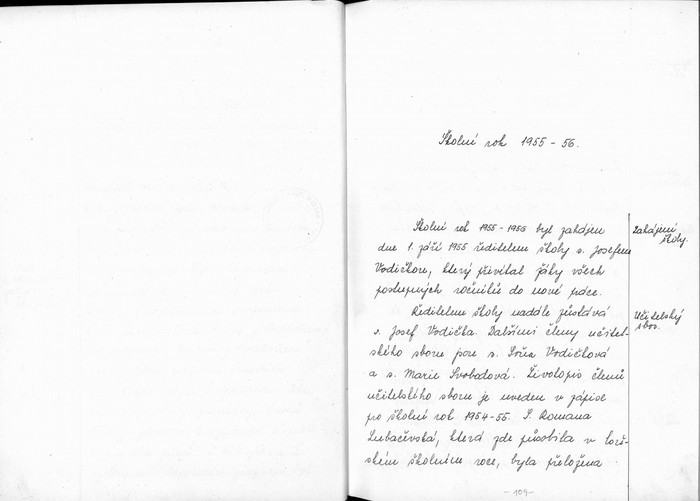 Školní rok 1955 - 56.
Školní rok 1955-1956 byl zahájen
dne 1. září 1955 ředitelem školy s. Josefem
Vodičkou, který přivítal žáky všech
postupných ročníků do nové práce.
Zahájení
školy.
Ředitelem školy nadále zůstává
s. Josef Vodička. Dalšími členy učitel-
ského sboru jsou s. Soňa Vodičková
a s. Marie Svobodová. Životopis členů
učitelského sboru je uveden v zápise
po školní rok 1954-55. S. Romana
Lubačevská, která zde působila v loň-
ském školním roce, byla přeložena
Učitelský
sbor.
- 109 -